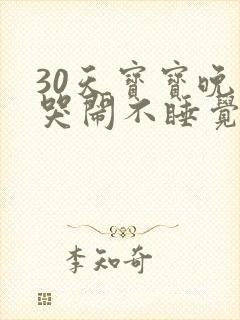 30天寶寶晚
哭鬧不睡覺
李知奇